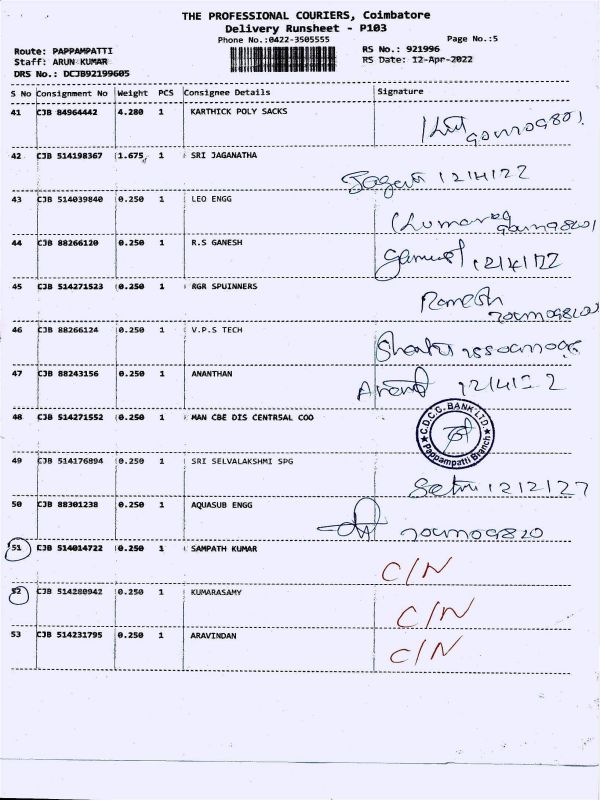 THE PROFESSIONAL COURIERS, Coimbatore
Delivery Runsheet - P103
Phone No.:0422-3505555
Page No.:5
Route: PAPPAMPATTI
RS No.: 921996
Staff: ARUN KUMAR
RS Date: 12-Apr-2022
DRS No.: DCJB92199605
S No Consignment No Weight PCS Consignee Details Signature
41 CJB 84964442 4.280 1 KARTHICK POLY SACKS
42 CJB 514198367 1.675 1 SRI JAGANATHA
12/4/22
43 CJB 514039840 0.250 1 LEO ENGG
44 CJB 88266120 0.250 1 R.S GANESH
12/4/22
45 CJB 514271523 0.250 1 RGR SPUINNERS
Ramesh
46 CJB 88266124 0.250 1 V.P.S TECH
47 CJB 88243156 0.250 1 ANANTHAN
Anand 12/4/22
48 CJB 514271552 0.250 1 MAN CBE DIS CENTRSAL COO
C.D.C.C. BANK LTD.
Pappampatti Branch
49 CJB 514176894 0.250 1 SRI SELVALAKSHMI SPG
50 CJB 88301238 0.250 1 AQUASUB ENGG
51 CJB 514014722 0.250 1 SAMPATH KUMAR
C/N
52 CJB 514280942 0.250 1 KUMARASAMY
C/N
53 CJB 514231795 0.250 1 ARAVINDAN
C/N